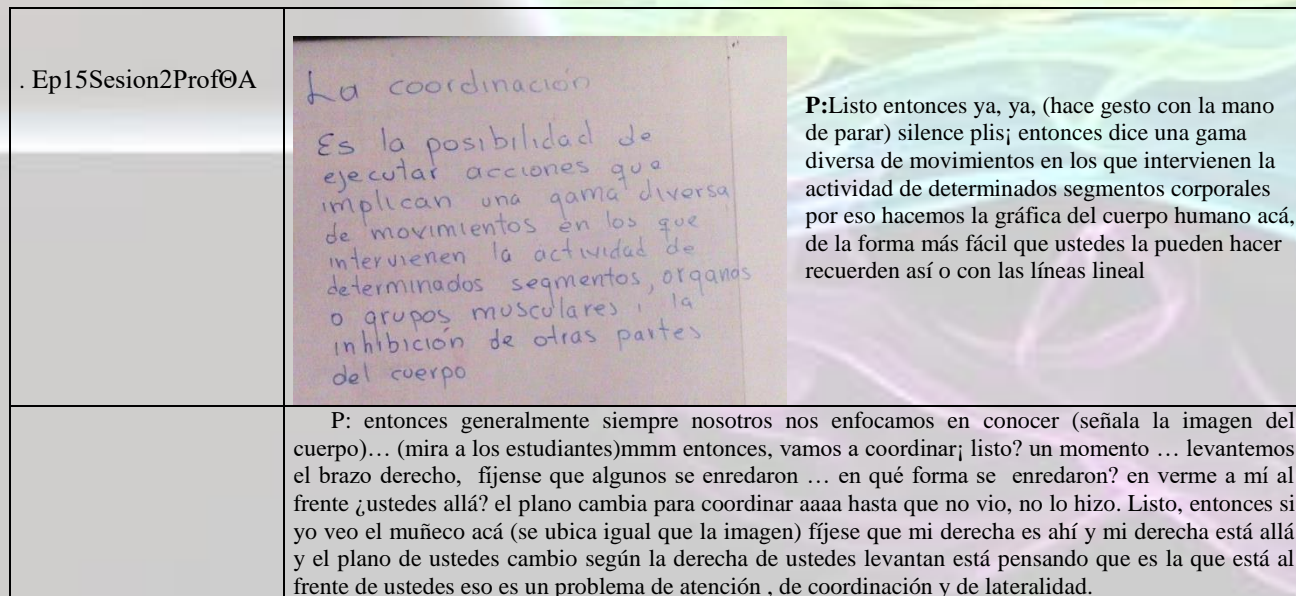 . Ep15Sesion2ProfΘA
La coordinación
Es la posibilidad de
ejecutar acciones que
implican una gama diversa
de movimientos en los que
intervienen la actividad de
determinados segmentos, organos
o grupos musculares i la
inhibición de otras partes
del cuerpo
P:Listo entonces ya, ya, (hace gesto con la mano
de parar) silence plis¡ entonces dice una gama
diversa de movimientos en los que intervienen la
actividad de determinados segmentos corporales
por eso hacemos la gráfica del cuerpo humano acá,
de la forma más fácil que ustedes la pueden hacer
recuerden así o con las líneas lineal
P: entonces generalmente siempre nosotros nos enfocamos en conocer (señala la imagen del
cuerpo)… (mira a los estudiantes)mmm entonces, vamos a coordinar¡ listo? un momento … levantemos
el brazo derecho, fíjense que algunos se enredaron … en qué forma se enredaron? en verme a mí al
frente ¿ustedes allá? el plano cambia para coordinar aaaa hasta que no vio, no lo hizo. Listo, entonces si
yo veo el muñeco acá (se ubica igual que la imagen) fíjese que mi derecha es ahí y mi derecha está allá
y el plano de ustedes cambio según la derecha de ustedes levantan está pensando que es la que está al
frente de ustedes eso es un problema de atención , de coordinación y de lateralidad.